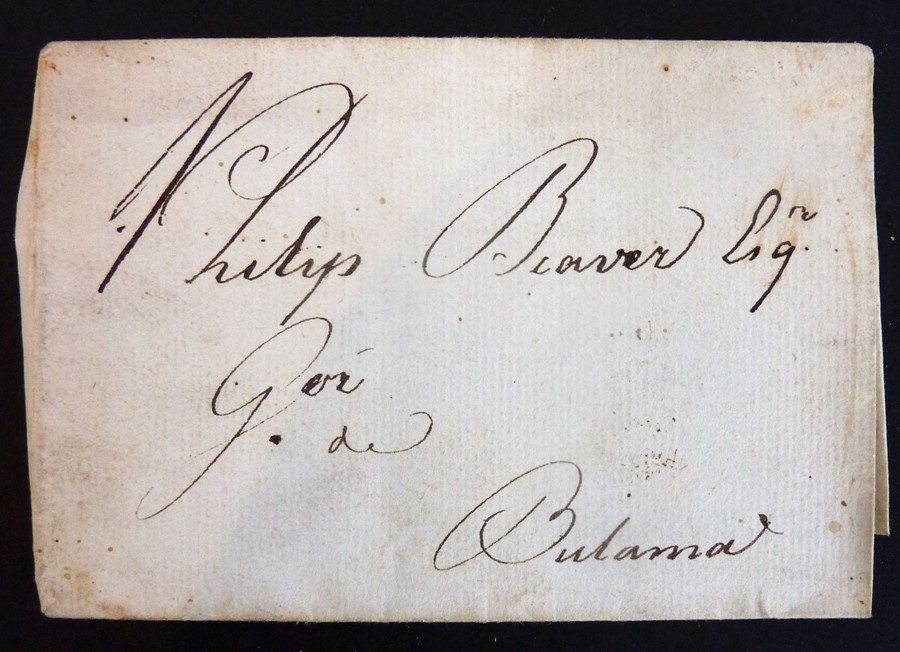 Philip Beaver Esqr.
Gor.
de
Bulama